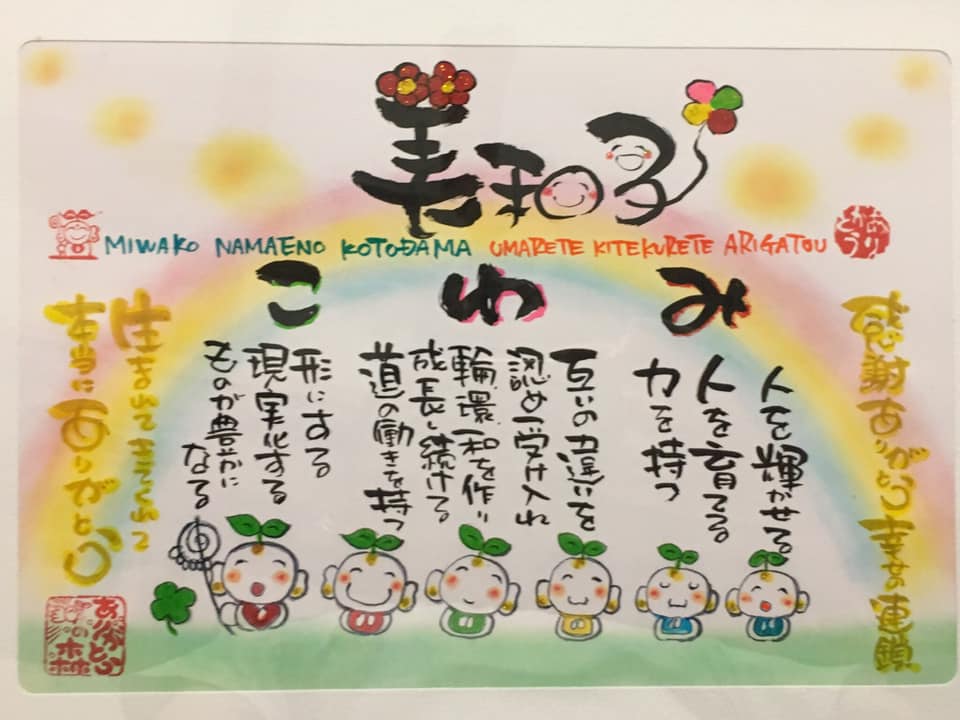 美和子
MIWAKO NAMAENO KOTODAMA UMARETE KITEKURETE ARIGATOU
感謝ありがとう幸せの連鎖
み
人を輝かせる
人を育てる
力を持つ
わ
互いの違いを
認め受け入れ
輪、環、和を作り
成長し続ける
道の働きを持つ
こ
形にする
現実化する
ものが豊かに
なる
生まれてきてくれて
本当にありがとう
ありがとう
の森